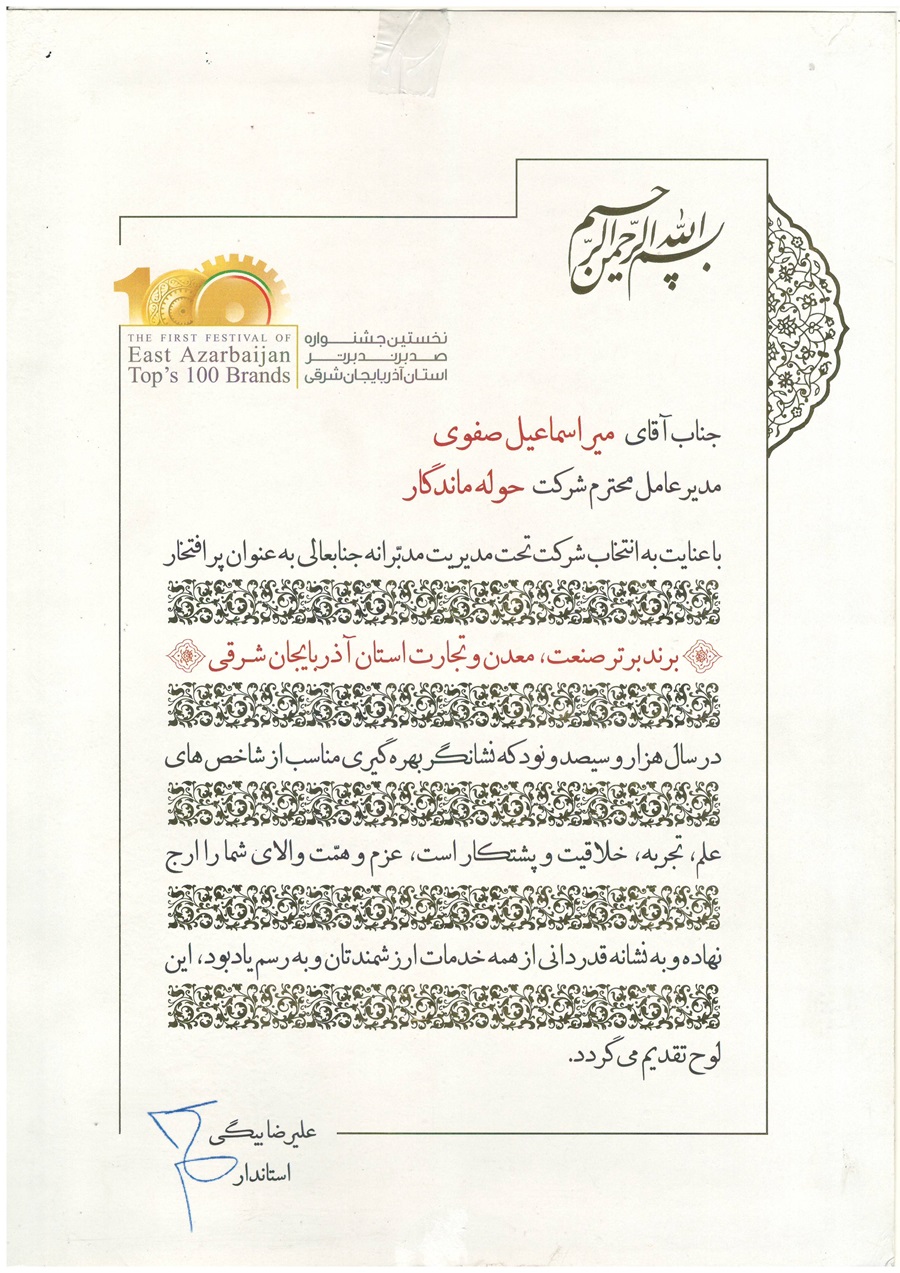 بسم الله الرحمن الرحیم
100
THE FIRST FESTIVAL OF
East Azarbaijan
Top's 100 Brands
نخستین جشنواره
صد برند برتر
استان آذربایجان شرقی
جناب آقای میر اسماعیل صفوی
مدیر عامل محترم شرکت حوله ماندگار
با عنایت به انتخاب شرکت تحت مدیریت مدبّرانه جنابعالی به عنوان پر افتخار
برند برتر صنعت، معدن و تجارت استان آذربایجان شرقی
در سال هزار و سیصد و نود که نشانگر بهره گیری مناسب از شاخص های
علم، تجربه، خلاقیت و پشتکار است، عزم و همّت والای شما را ارج
نهاده و به نشانه قدردانی از همه خدمات ارزشمندتان و به رسم یادبود، این
لوح تقدیم می گردد.
علیرضا بیگی
استاندار